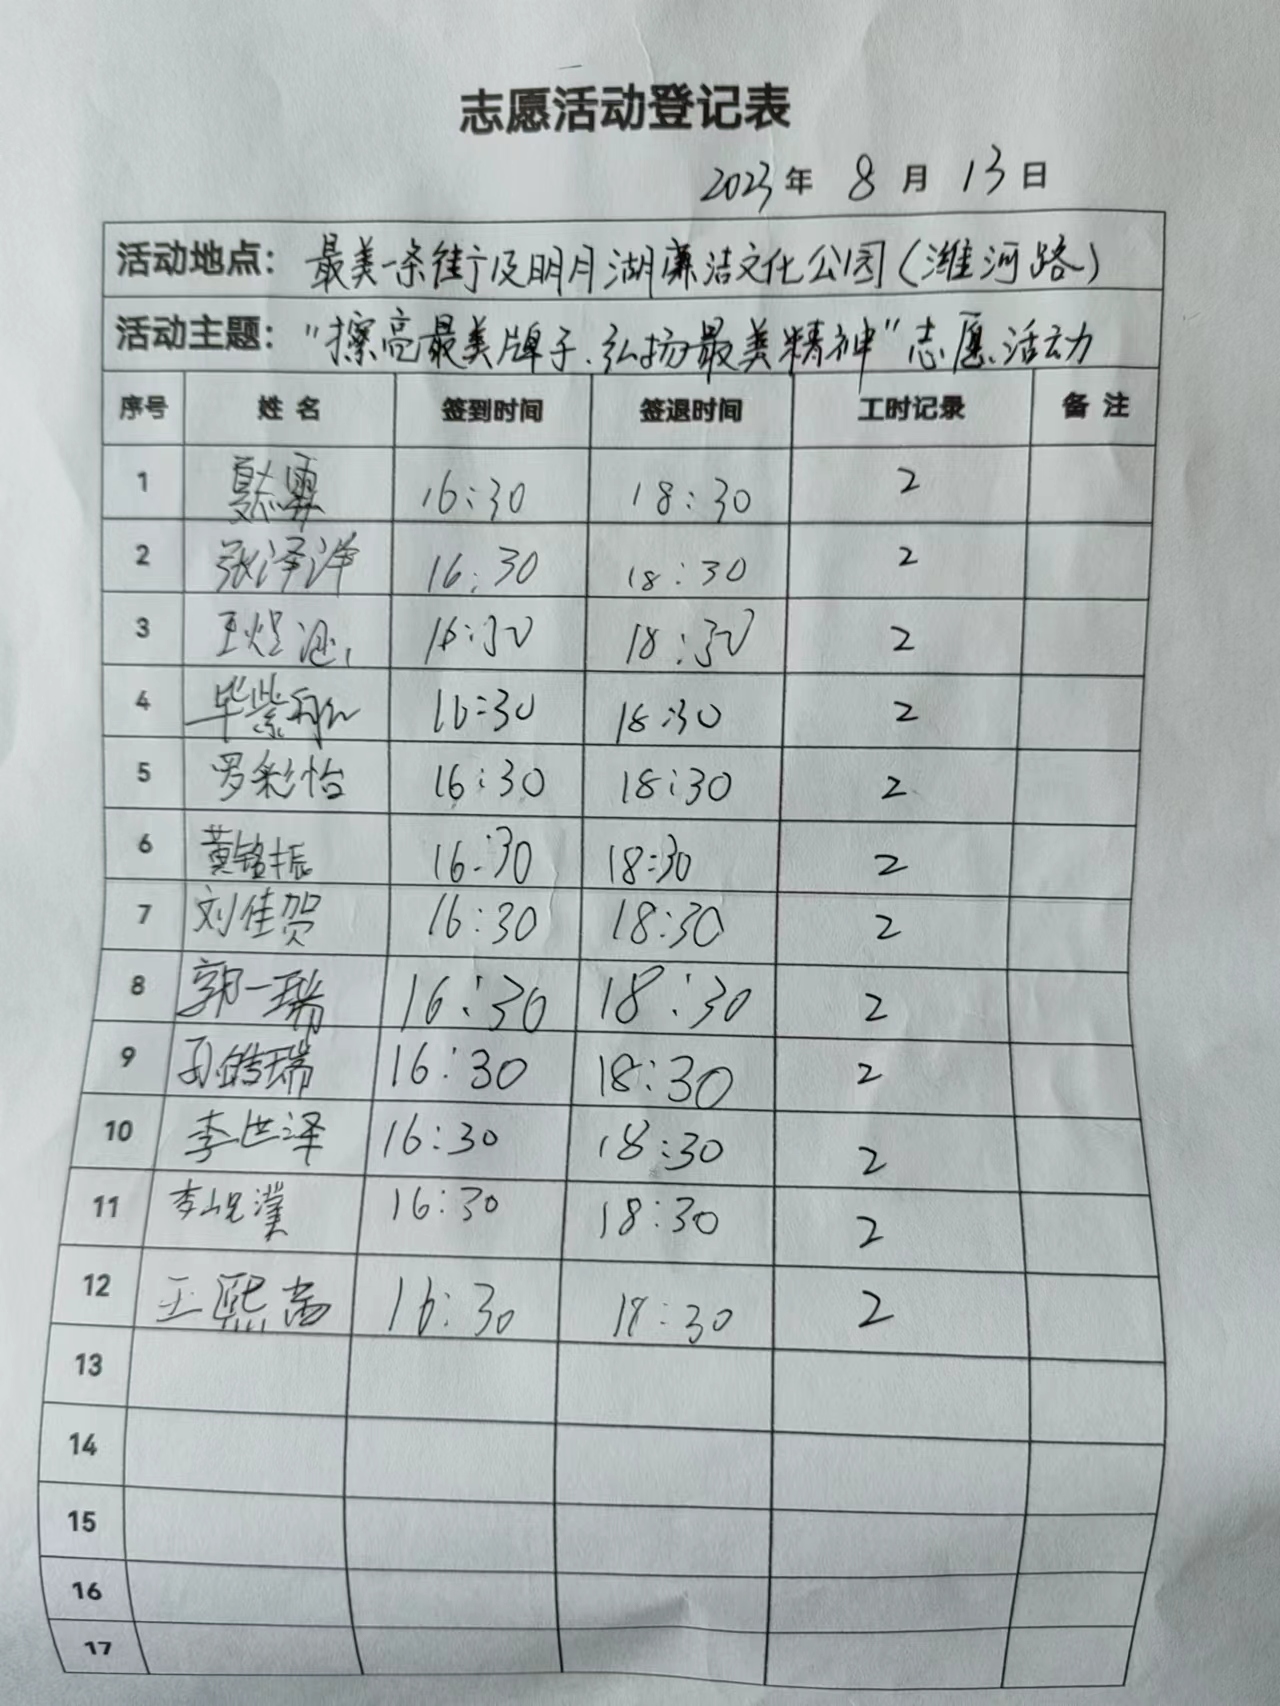 志愿活动登记表
2023年 8月 13日
活动地点：最美一条街及明月湖廉洁文化公园（潍河路）
活动主题：“擦亮最美牌子、弘扬最美精神”志愿活动
序号 姓名 签到时间 签退时间 工时记录 备注
1 16:30 18:30 2
2 张泽洋 16:30 18:30 2
3 王煜涵 16:30 18:30 2
4 毕紫 16:30 18:30 2
5 罗彩怡 16:30 18:30 2
6 黄铭振 16:30 18:30 2
7 刘佳贺 16:30 18:30 2
8 郭一瑞 16:30 18:30 2
9 孙皓瑞 16:30 18:30 2
10 李洪泽 16:30 18:30 2
11 李岘濮 16:30 18:30 2
12 王熙 16:30 18:30 2
13
14
15
16
17